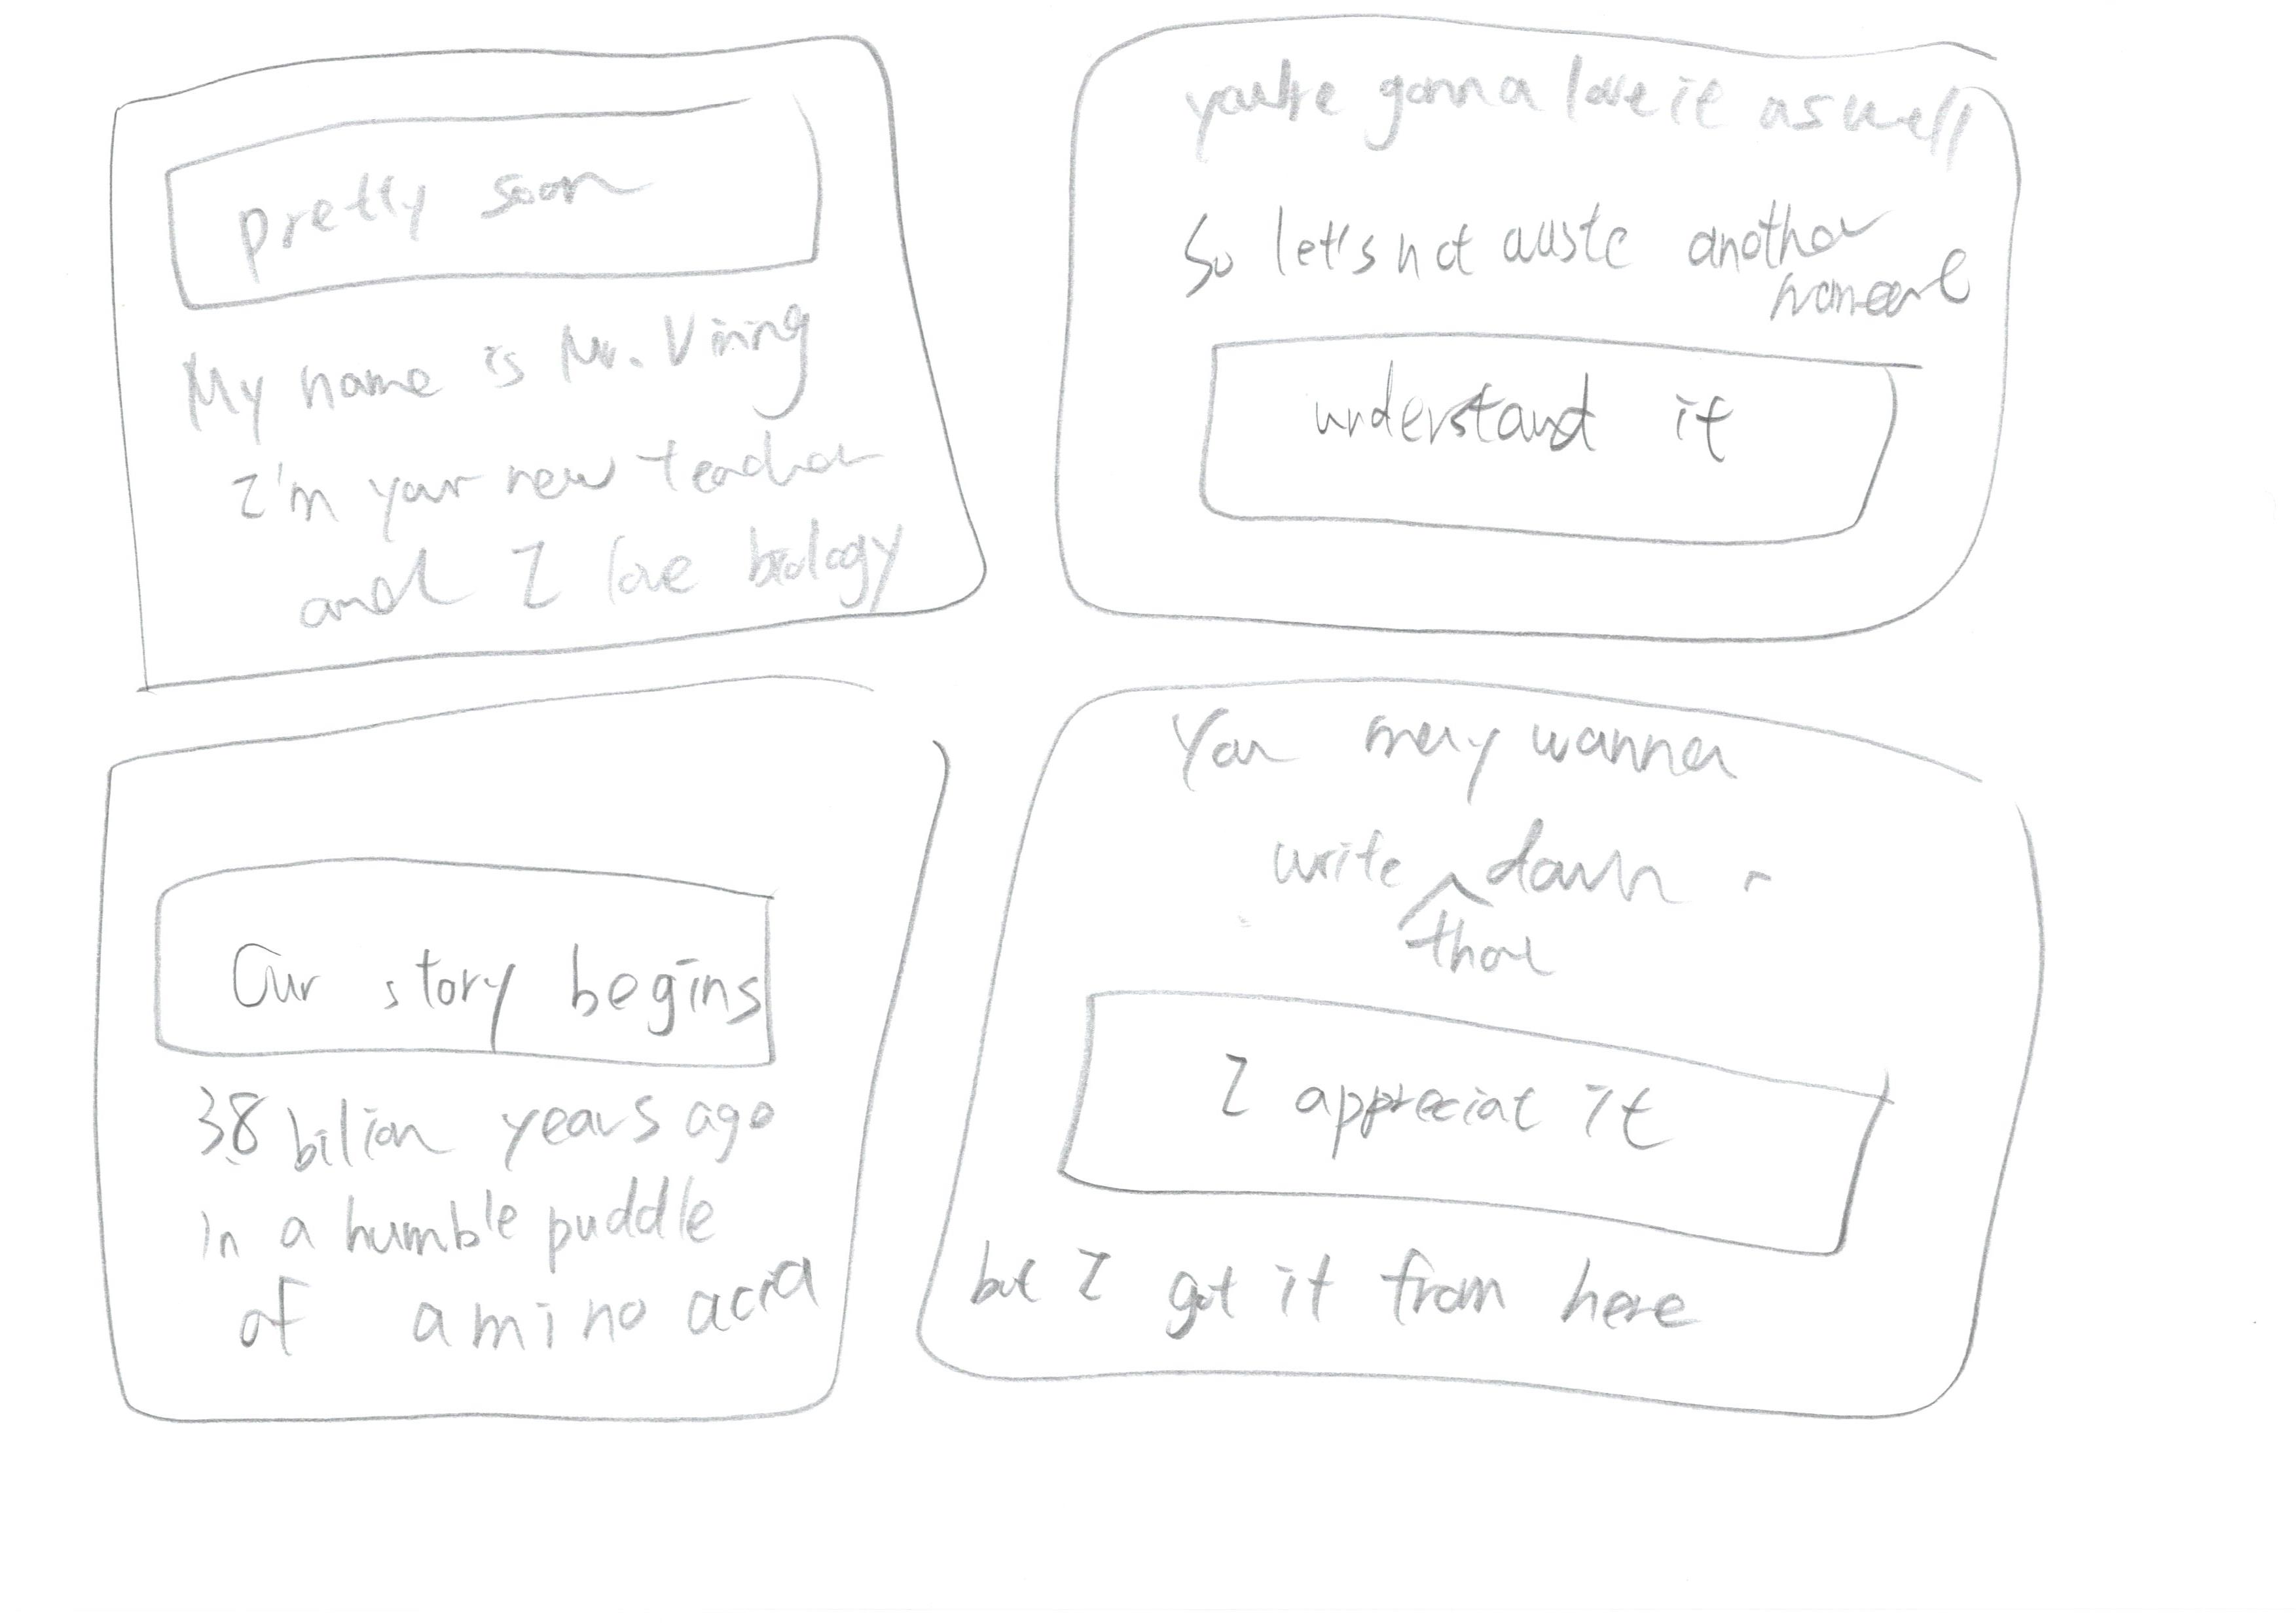 pretty soon
My name is Mr. Vining
I'm your new teacher
and I love biology
you're gonna love it as well
So let's not waste another
moment
understand it
Our story begins
3.8 bilion years ago
in a humble puddle
of amino acid
You may wanna
write down
that
I appreciat it
but I got it from here